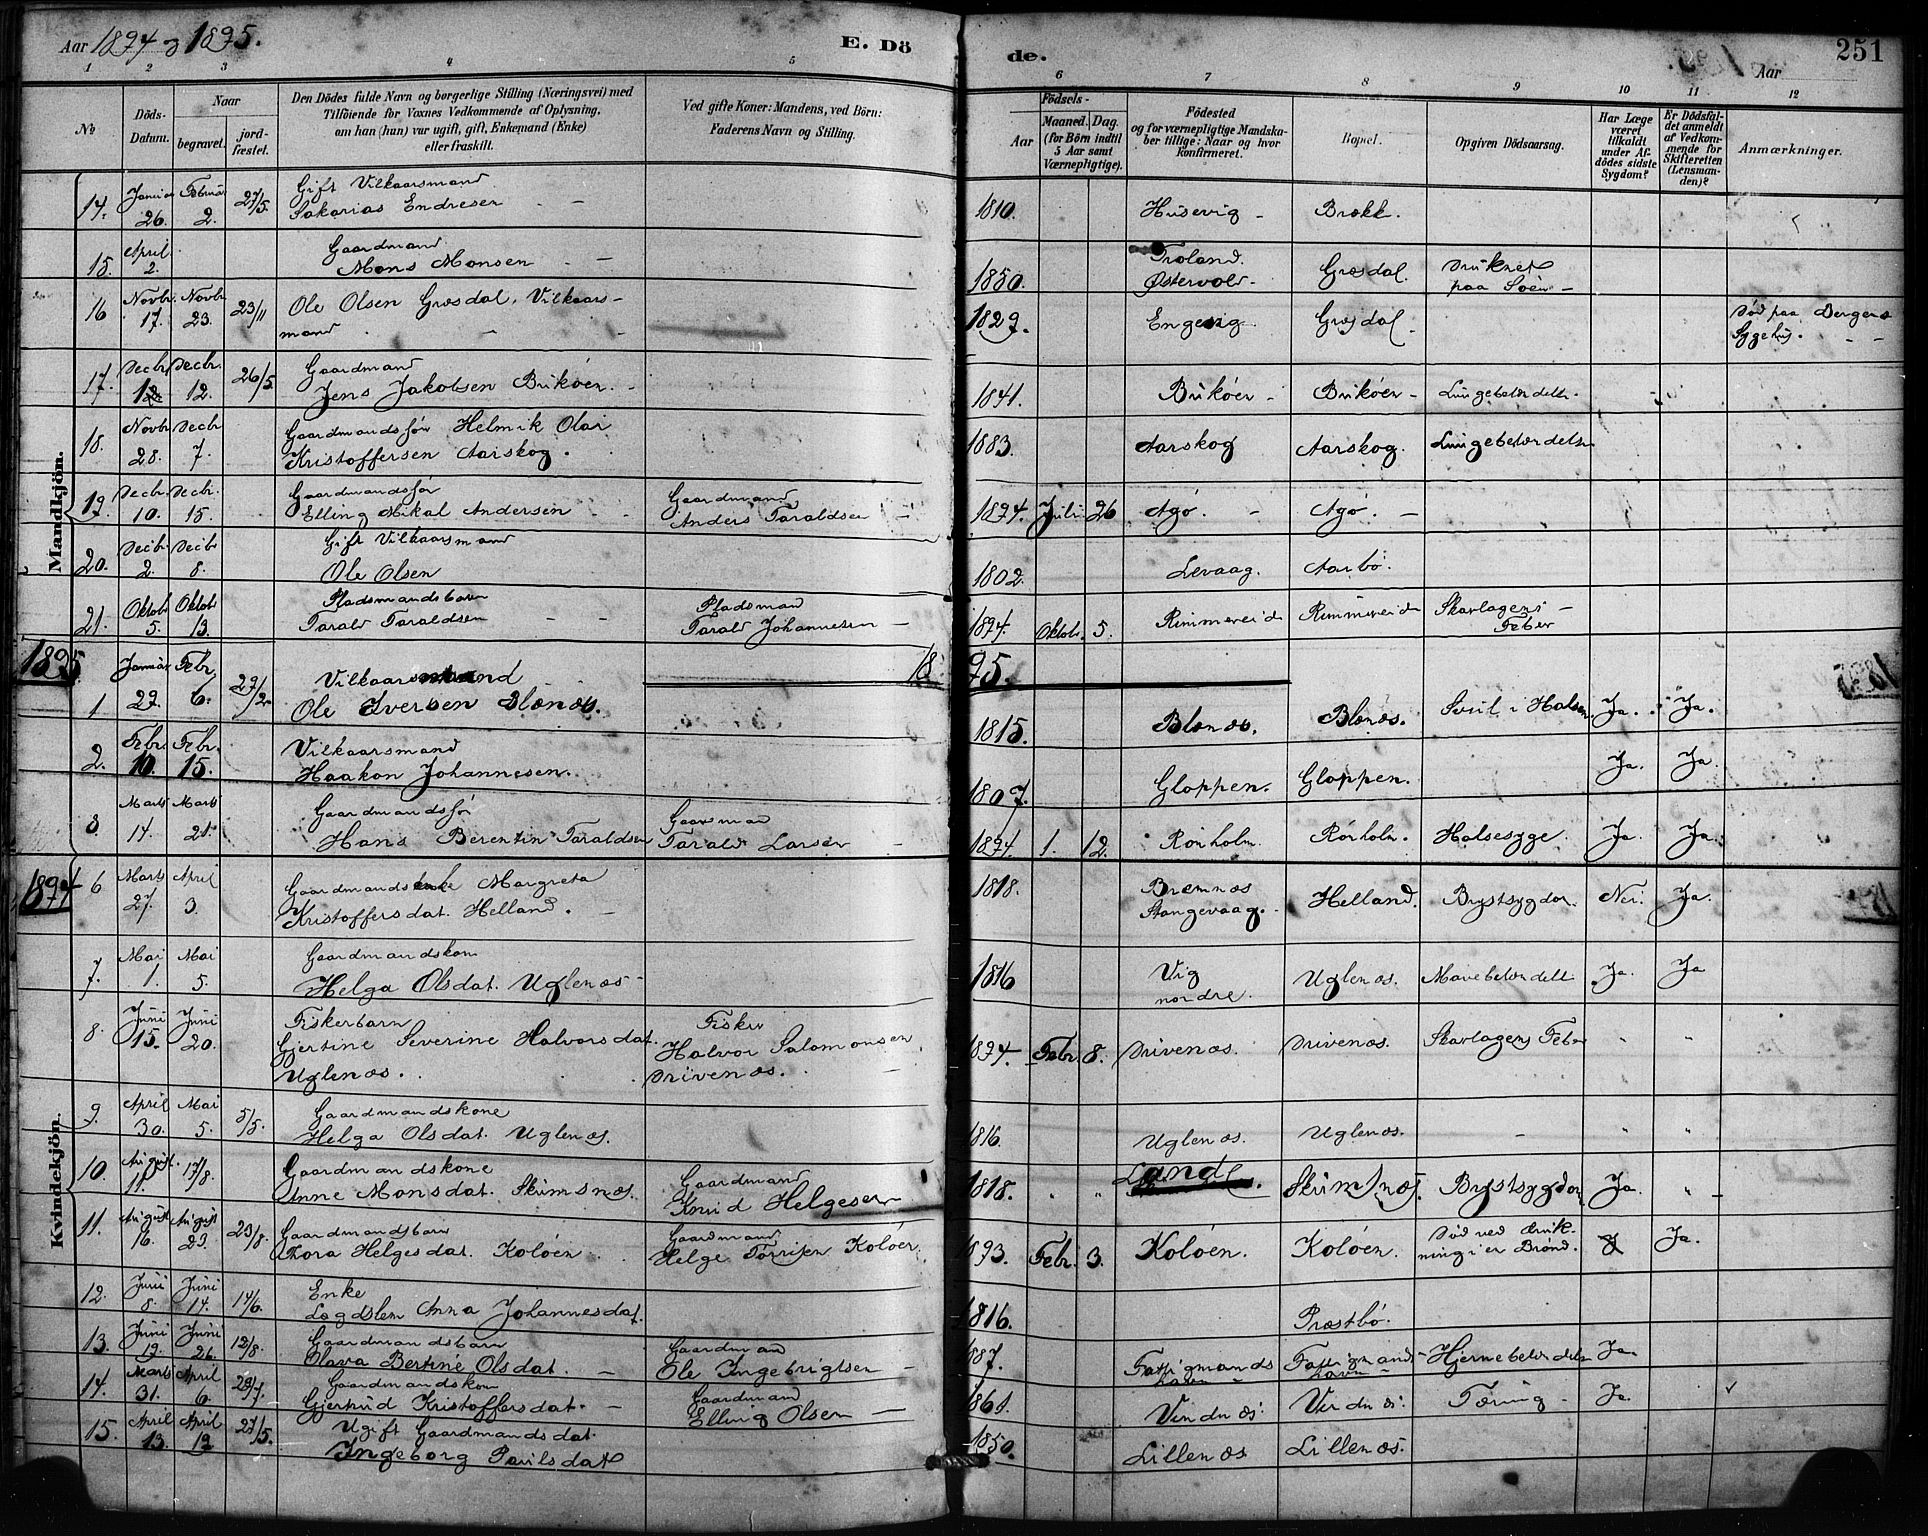 Aar 1894 og 1895.
E. Dö
de.
Aar
251
1 2 3 4 5 6 7 8 9 10 11 12
No
Döds-Datum.
Naar
begravet.
jord-fæstet.
Den Dödes fulde Navn og borgerlige Stilling (Næringsvei) med
Tilföiende for Voxnes Vedkommende af Oplysning.
om han (hun) var ugift, gift, Enkemand (Enke)
eller fraskilt.
Ved gifte Koner: Mandens, ved Börn:
Faderens Navn og Stilling.
Födsels-
Aar
Maaned. Dag.
(for Börn indtil
5 Aar samt
Værnepligtige).
Födested
og for værnepligtige Mandska-
ber tillige: Naar og hvor
konfirmeret.
Bopæl.
Opgiven Dödsaarsag.
Har Læge
været
tilkaldt
under Af-
dödes sidste
Sygdom?
Er Dödsfal-
det anmeldt
af Vedkom-
mende for
Skifteretten
(Lensman-
den)?
Anmærkninger.
Mandkjön.
14. Januar 26. Februar 2. 27/5. Gift Vilkaarsmand
Sakarias Endresen 1810. Husevig Brekk.
15. April 2. Gaardmand
Mons Monsen 1850. Troland Østervold Græsdal. Druknet
paa Søen
16 Novbr. 17. Novbr. 23. 23/11 Ole Olsen Græsdal, Vilkaars-
mand 1829. Engevig Græsdal Död paa Bergens
Sygehus.
17. Decbr. 12 Decbr. 12. 26/5 Gaardmand
Jens Jakobsen Brikøen 1841. Brikøen Brikøen Lungebetændelse
18. Novbr. 28. Decbr. 7. Gaardmandssøn Helmik Olai
Kristoffersen Aarskog. 1883. Aarskog Aarskog. Lungebetændelse
19. Decbr. 10. Decbr. 15. Gaardmandssøn
Elling Mikal Andersen Gaardmand
Anders Taraldsen 1894. Juli 26 Agø. Agø.
20. Decbr. 2. Decbr. 8. Gift Vilkaarsmand
Ole Olsen 1802. Levaag. Aarbø.
21. Oktob. 5. Oktob. 13. Pladsmandsbarn
Tarald Taraldsen Pladsmand
Tarald Johannesen 1894. Oktob. 5. Rimmereid Rimmereid Skarlagens
Feber
1895 1895.
1 Januar 27. Febr. 6. 29/2 Vilkaarsmand
Ole Iversen Blænæs. 1815. Blænæs. Blænæs. Svul i Halsen Ja. Ja.
2. Febr. 10. Febr. 15. Vilkaarsmand
Haakon Johannesen. 1807. Gloppen. Gloppen. Ja. Ja
3. Marts 14. Marts 21. Gaardmandssøn
Hans Berentin Taraldsen Gaardsman
Tarald Larsen 1894. 1. 12. Rørholm. Rørholm. Halsesyge. Ja. Ja.
1894
Kvindekjön.
6 Marts 27. April 3. Gaardmandsenke Margreta
Kristoffersdat. Helland. 1818. Bremnes
Stangevaag. Helland. Brystsygdom. Nei. Ja.
7. Mai 1. Mai 5. Gaardmandskone
Helga Olsdat. Uglenæs 1816 Vig
nordre. Uglenæs. Mavebetændelse Ja. Ja
8. Juni 15. Juni 20. Fiskerbarn
Gjertine Severine Halvorsdat.
Uglenæs. Fisker
Halvor Salomonsen
Drivenæs. 1894 Febr. 8. Drivenæs. Drivenæs. Skarlagens Feber " "
9. April 30. Mai 5. 5/5. Gaardmandskone
Helga Olsdat. Uglenæs. 1816. Uglenæs. Uglenæs. - " "
10. August. 11. 17/8. Gaardmandskone
Anne Monsdat. Skumsnæs. Gaardmand
Knud Helgesen 1818. " " Lande. Skumsnæs. Brystsygdom Ja. "
11. August 16. August 23. 23/8. Gaardmandsbarn
Thora Helgesdat. Koløen. Gaardmand
Helge Torrisen Koløen 1893. Febr. 3. Koløen. Koløen. Død ved Druk-
ning i en Brønd. Ja.
12. Juni 8. Juni 14. 14/6. Enke
Lægdslem Anna Johannesdat. 1816. Præstbø.
13. Juni 19. Juni 26. 12/8. Gaardmandsbarn
Olava Bertine Olsdat. Gaardmand
Ole Ingebrigtsen 1887. Fattigmands
havn Fattigmands
havn Hjernebetændelse Ja.
14. Marts 31. April 6. 29/7. Gaardmandskone
Gjertrud Kristoffersdat. Gaardmand
Elling Olsen 1861. Vindnæs. Vindnæs. Tæring Ja.
15. April 13. April 19 27/5. Ugift Gaardmandsdat.
Ingeborg Paulsdat 1850. Lillenæs Lillenæs.